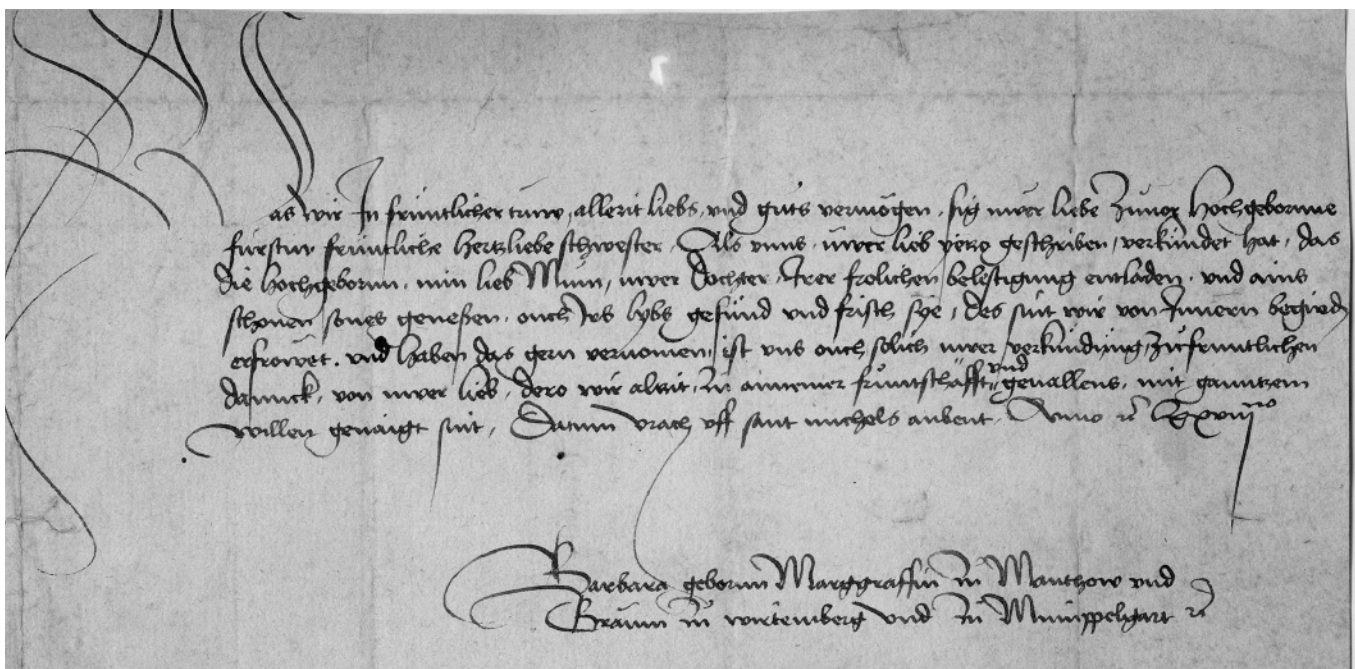 Was wir In früntlicher trüw, allerit liebs, vnd guts vermögen, sig uwer liebe Zuuor Hochgebornne
fürstin früntliche hertzliebe schwester, Als vnns, üwer lieb yetzo geschriben, verkündet hat, das
die hochgeborn, min lieb Mum, uwer dochter, Irer frolichen belestigung entladen, vnd ains
schonen sones geneßen, ouch Irs lybs gesund vnd frisch sye, des sint wir von Innern begirden
erfröwet, vnd haben das gern vernomen, ist vns ouch solich uwer verkündung, zu fruntlichen
dannck, von uwer lieb, dero wir alzit, zu annemer früntschäfft, vnd geuallens, mit ganntzem
willen genaigt sint, Datum vrach vff sant michels aubent, Anno etc Lxxviij no
Barbara geborn Marggraffin zu Manthow vnd
Gräuin zu wirtemberg vnd zu Mümppelgart etc